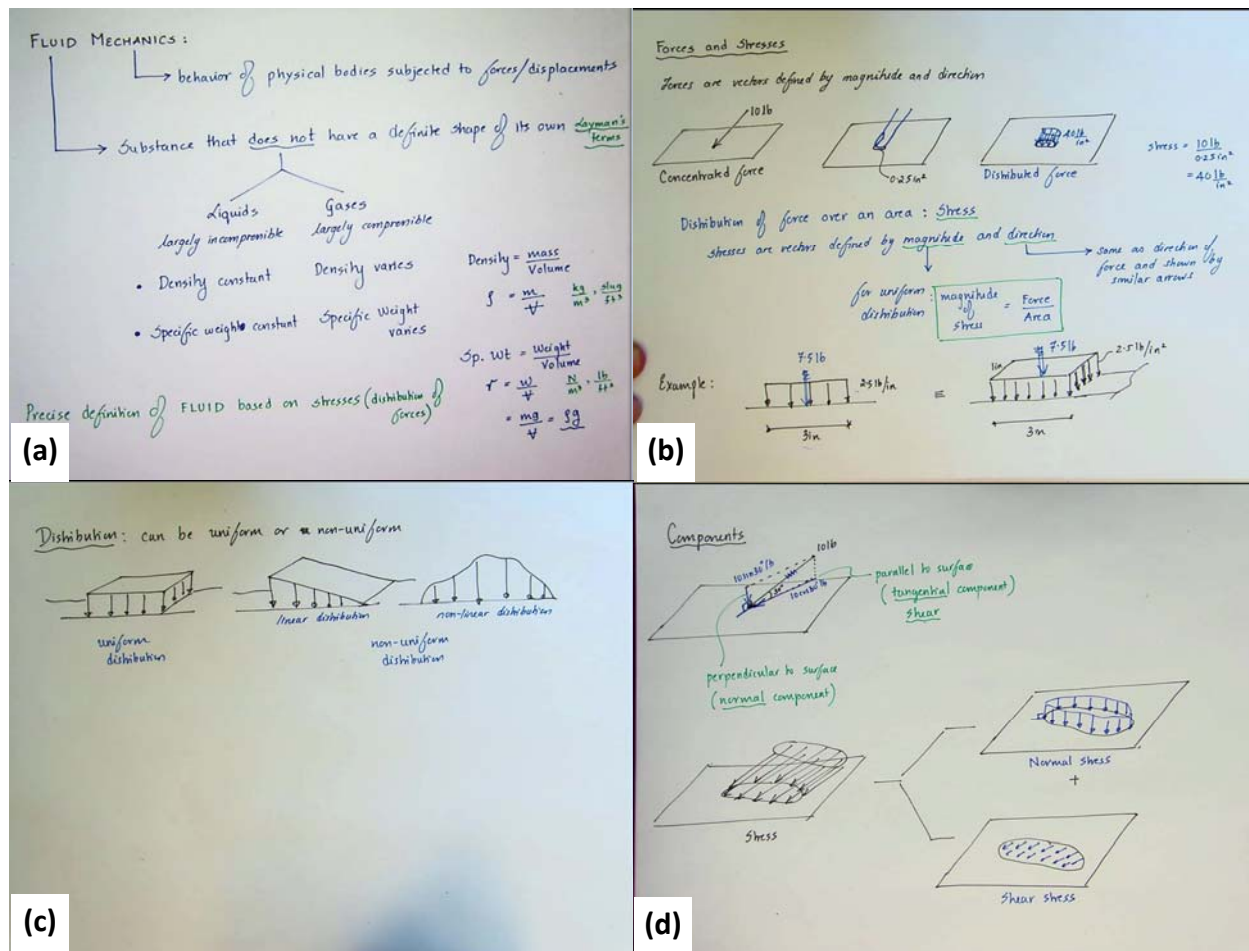 FLUID MECHANICS :
behavior of physical bodies subjected to forces/displacements
Substance that does not have a definite shape of its own Layman's terms
Liquids Gases
largely incompressible largely compressible
• Density constant Density varies
• Specific weight constant Specific Weight varies
Density = mass / Volume
ρ = m / V kg/m³ , slug/ft³
Sp. Wt = Weight / Volume
γ = W / V N/m³ , lb/ft³
= mg / V = ρg
Precise definition of FLUID based on stresses (distribution of forces)
(a)
Forces and Stresses
Forces are vectors defined by magnitude and direction
10 lb
0.25 in²
40 lb/in²
Concentrated force
Distributed force
stress = 10 lb / 0.25 in²
= 40 lb/in²
Distribution of force over an area : Stress
stresses are vectors defined by magnitude and direction
same as direction of
force and shown by
similar arrows
for uniform
distribution :
magnitude of stress = Force / Area
Example :
7.5 lb
2.5 lb/in
3in
≡
1in
7.5 lb
2.5 lb/in²
3in
(b)
Distribution : can be uniform or non-uniform
linear distribution
non-linear distribution
uniform
distribution
non-uniform
distribution
(c)
Components
10 lb
10 sin 30° lb
30°
10 cos 30° lb
parallel to surface
(tangential component)
shear
perpendicular to surface
(normal component)
Normal stress
+
Stress
Shear stress
(d)